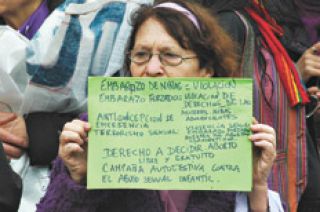 EMBARAZO DE NIÑAS = VIOLACION
EMBARAZO FORZADO = VIOLACION DE
DERECHOS DE LAS
ANTICONCEPCION DE
EMERGENCIA
TERRORISMO SEXUAL
DERECHO A DECIDIR ABORTO
LIBRE Y GRATUITO
CAMPAÑA AUTOGESTIVA CONTRA
EL ABUSO SEXUAL INFANTIL.